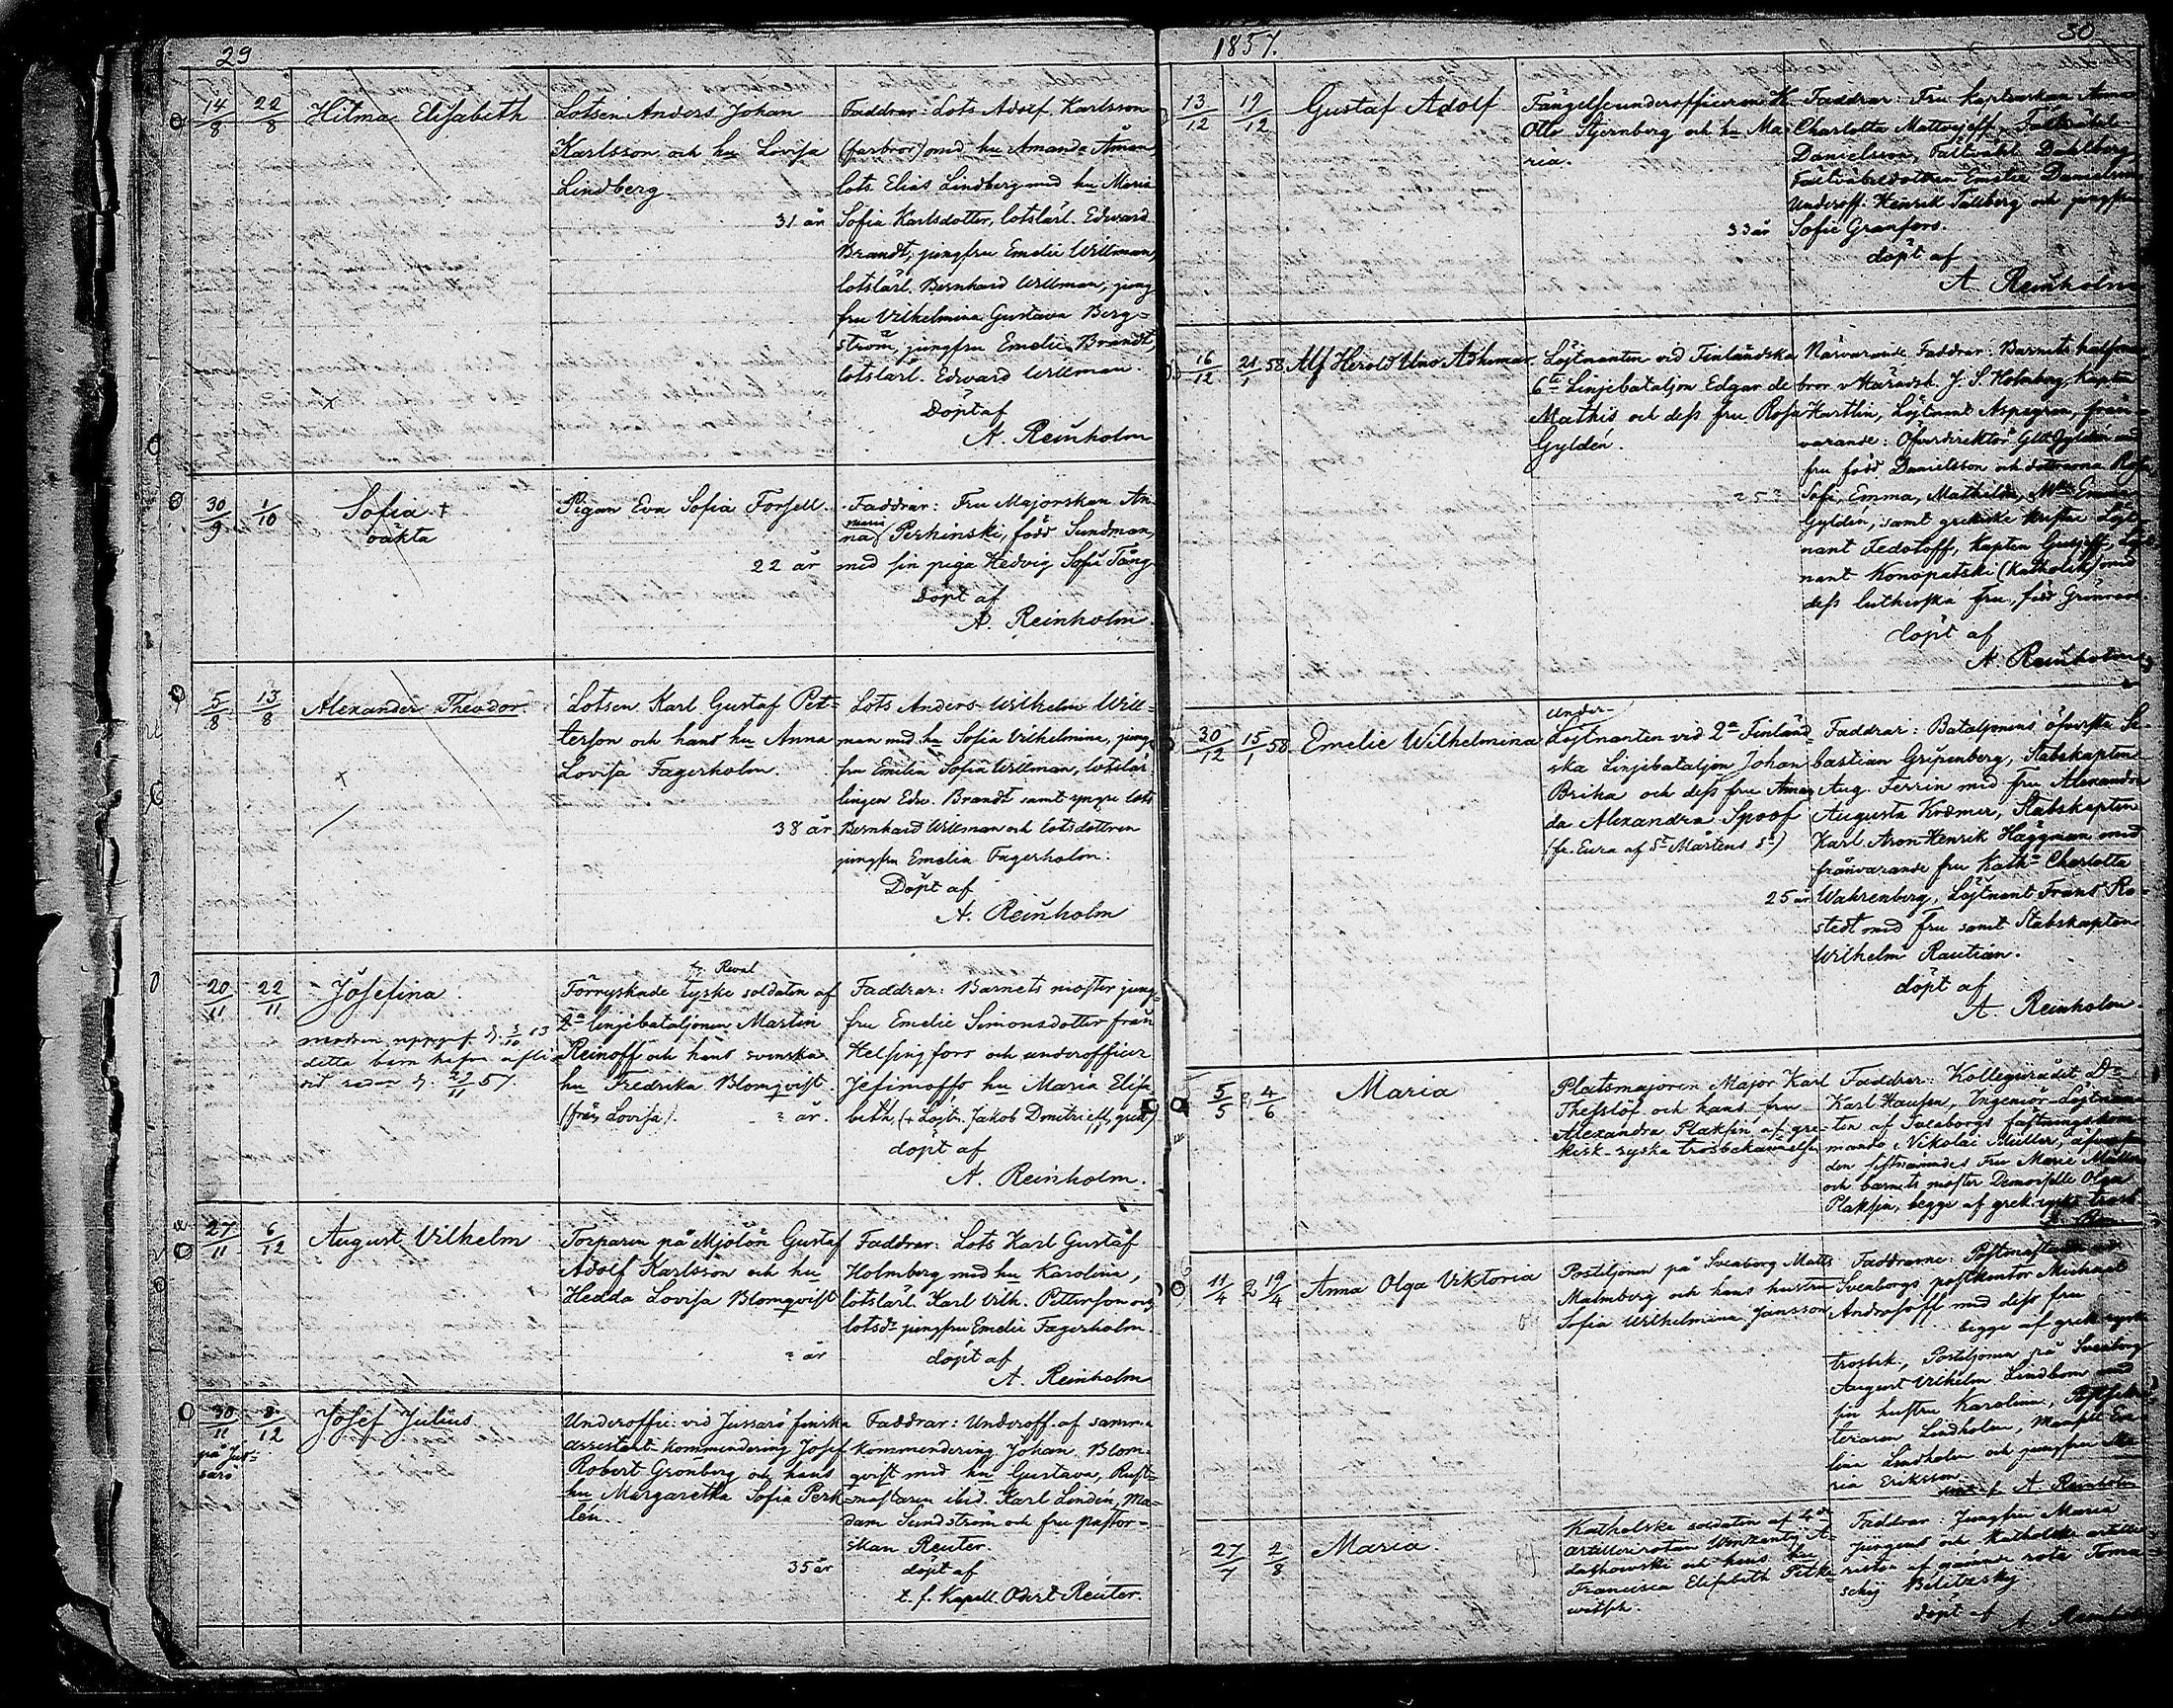 29
14/8 22/8 Hilma Elisabeth
Lotsen Anders Johan
Karlsson och hu Lovisa
Lindberg
31 år
Faddrar: Lots Adolf Karlsson
(farbror) med hu Amanda Åman
lots Elias Lindberg med hu Maria
Sofia Karlsdotter, lotslärl. Edward
Brandt, jungfru Emelie Willman,
lotslärl. Bernhard Willman, jung
fru Vilhelmina Gustava Berg-
ström, jungfru Emelie Brandt,
lotslärl. Edward Willman.
Döpt af
A. Reinholm
30/9 1/10 Sofia †
oäkta
Pigan Eva Sofia Forsell.
22 år
Faddrar: Fru Majorskan An-
maria
na Perhinski, född Sundman,
med sin piga Hedvig Sofie Tång
Döpt af
A. Reinholm.
5/8 13/8 Alexander Theodor.
Lotsen Karl Gustaf Pet-
terson och hans hu Anna
Lovisa Fagerholm.
38 år
Lots Anders Wilhelm Will-
man med hu Sofia Vilhelmina, jung-
fru Emilia Sofia Willman, lotslär-
lingen Edv. Brandt samt yngre lots
Bernhard Willman och Lotsdottren
jungfru Emelia Fagerholm.
Döpt af
A. Reinholm
20/11 22/11 Josefina.
modren uppgaf d. 3/10 13
detta barn hafva aflid
vid redan d. 29/11 57.
fr. Reval
Förryskade tyske soldaten af
2a linjebataljonen Martin
Reinoff och hans svenska
hu Fredrika Blomqvist.
(från Lovisa). ? år.
Faddrar: Barnets moster jung-
fru Emelie Simonsdotter från
Helsingfors och underofficer
Jefimoffs hu Maria Elisa
beth, (+ Löjtn. Jakob Dmitrieff, grek)
döpt af
A. Reinholm.
27/11 6/12 August Vilhelm
Torparen på Mjölön Gustaf
Adolf Karlsson och hu
Hedda Lovisa Blomqvist
? år
Faddrar: Lots Karl Gustaf
Holmberg med hu Karolina,
lotslärl. Karl Vilh. Petterson och
lotsdr jungfru Emelie Fagerholm.
döpt af
A. Reinholm
30/11 8/12 Josef Julius.
på Jus-
sarö
Underoffic. vid Jussarö finska
assistent kommendering Josef
Robert Grönberg och hans
hu Margaretha Sofia Perk-
lén.
35 år
Faddrar: Underoff. af samma
kommendering Johan Blom-
qvist med hu Gustava, Rust-
mästaren ibid. Karl Lindén, Ma-
dam Sundström och fru pastor-
skan Reuter.
döpt af
t. f. Kapell. Odert Reuter.
1857.
30
13/12 19/12 Gustaf Adolf
Fängelseunderofficeren K.
Otto Stjernberg och hu Ma-
ria.
33 år
Faddrar: Fru Anna
Charlotta Mattvejeff,
Danielsson, Fältväbl Dahlberg,
Fältväbeldottren Emelie Danielsson
Underoff. Henrik Tallberg och jungfru
Sofie Granfors.
döpt af
A Reinholm
16/12 21/1 58. Alf Herold Uno Adhemar
Löjtnanten vid Finländska
6te Linjebataljon Edgar de
Mathis och dess fru Rosa
Gyldén.
25 ?
Närvarande Faddrar: Barnets
bror v Häradsh. J. S. Holmberg, Kapten
Hartlin, Löjtnant Aspegren, från-
varande: Öfverdirektör Gyldén med
fru född Danielsson och döttrarna Rosa
Sofi, Emma, Mathilda, Emma
Gyldén, samt grekiske kristne Löjt-
nant Fedotoff, Kapten Löjt
nant Konopatski (Katholsk) med
dess lutherska fru, född Grönroos.
döpt af
A. Reinholm
30/12 15/1 58. Emelie Wilhelmina
Under-
Löjtnanten vid 2a Finländ-
ska Linjebataljon Johan
Briha och dess fru Aman-
da Alexandra Spoof
(fr. Eura af St Mårtens Sn)
25 år
Faddrar: Bataljonens öfverste Se-
bastian Gripenberg, Stabskapten
Aug. Ferrin med fru Alexandra
Augusta Kræmer, Stabskapten
Karl Aron Henrik Häggman med
frånvarande fru Kath. Charlotta
Wahrenberg, Löjtnant Frans Ro-
stedt med fru samt Stabskapten
Wilhelm Rautian.
döpt af
A. Reinholm.
5/5 4/6 Maria
Platsmajoren Major Karl
Thesslöf och hans fru
Alexandra Plaksin af gre-
kisk-ryska trosbekännelsen
Faddrar: Kollegirådet Dr
Karl Haufen, Ingeniör-Löjtnan-
ten af Sveaborgs fästningskom-
mando Nikolai Müller,
den sistnämndes Fru Marie Müller
och barnets moster Demoiselle Olga
Plaksin, begge af grek. ryska
11/4 19/4 Anna Olga Viktoria
Postiljonen på Sveaborg Matts
Malmberg och hans hustru
Sofia Wilhelmina Jansson
Faddrarne: Postmästaren
Sveaborgs postkontor Michael
Androsoff med dess fru
begge af grek. ryska
trosbek., Postiljonen på Sveaborg
August Vilhelm Lindbom med
sin hustru Karolina,
Lindholm, Mamsell Eve-
lina Lindholm och jungfru Ma-
ria Eriksson.
A Reinholm
27/7 2/8 Maria.
Katholske soldaten af 4de
artillerirotan
och hans hu
Francisca Elisabeth Petke-
witsch.
Faddrar: Jungfru Maria
Jungens och Katholske artille-
risten af samma rota Toma-
schij Bilitzsky
Döpt af
A. Reinholm